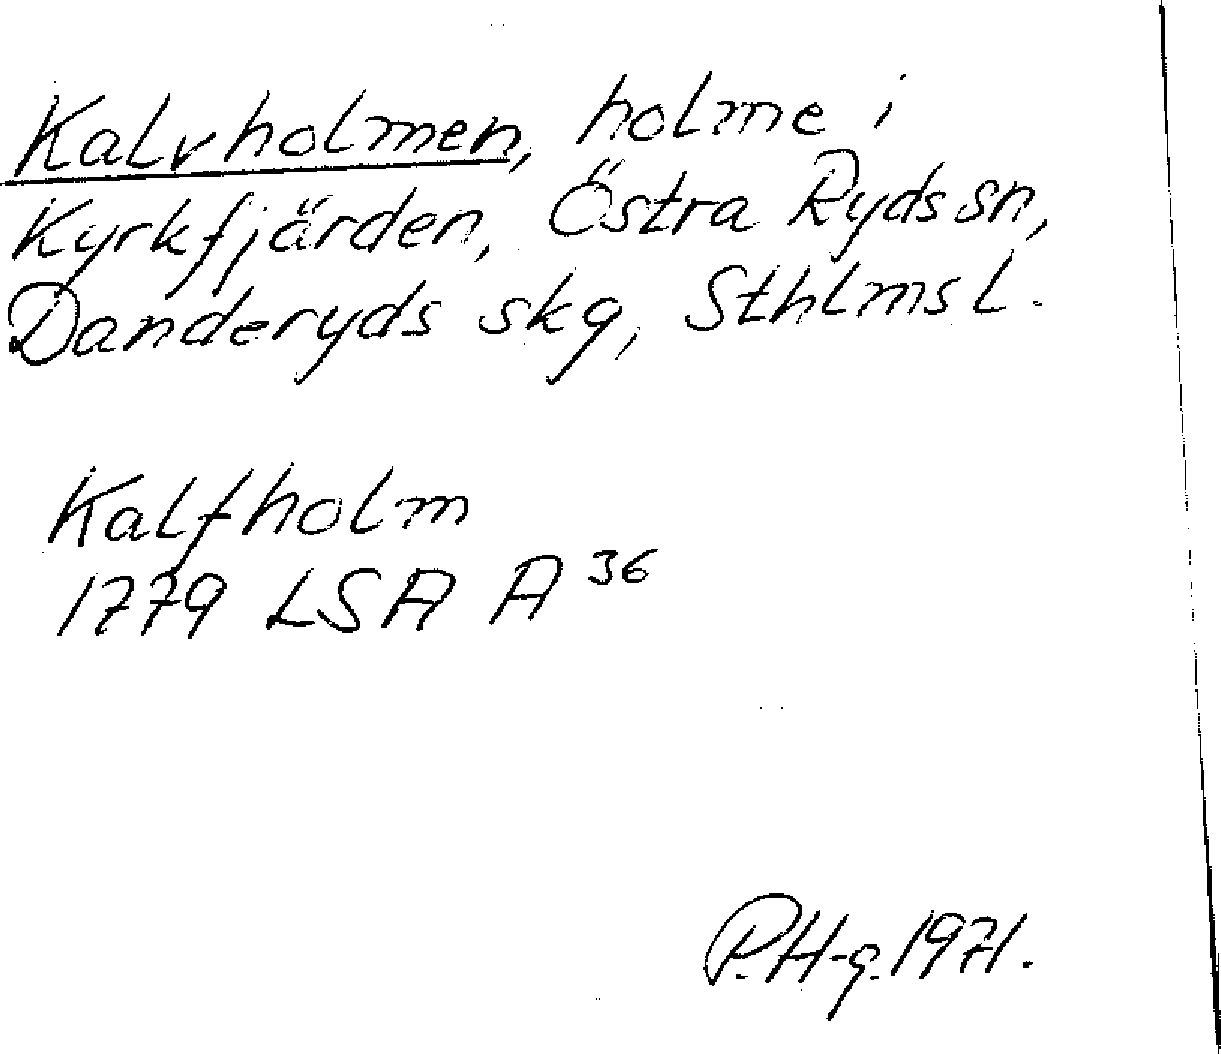 Kalvholmen, holme i
Kyrkfjärden, Östra Ryds sn,
Danderyds skg, Sthlms l.
Kalfholm
1779 LSA A 36
P.H-g. 1971.